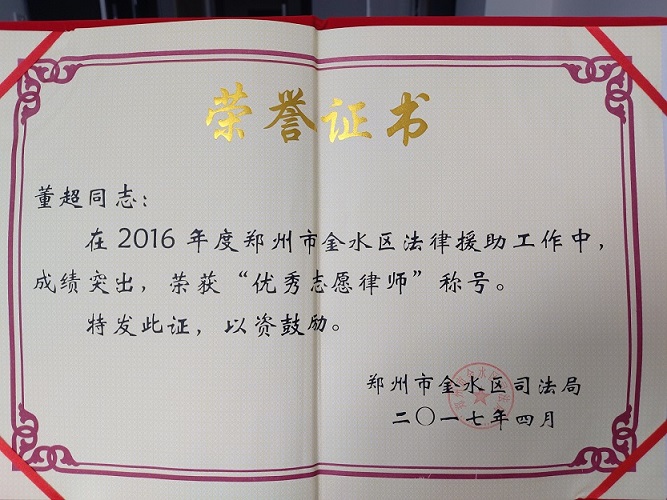 荣誉证书
董超同志：
在2016年度郑州市金水区法律援助工作中，
成绩突出，荣获“优秀志愿律师”称号。
特发此证，以资鼓励。
郑州市金水区司法局
二〇一七年四月